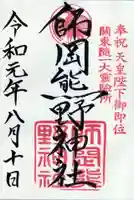 奉祝 天皇陛下御即位
関東随一大霊験所
師岡熊野神社
令和元年八月十日